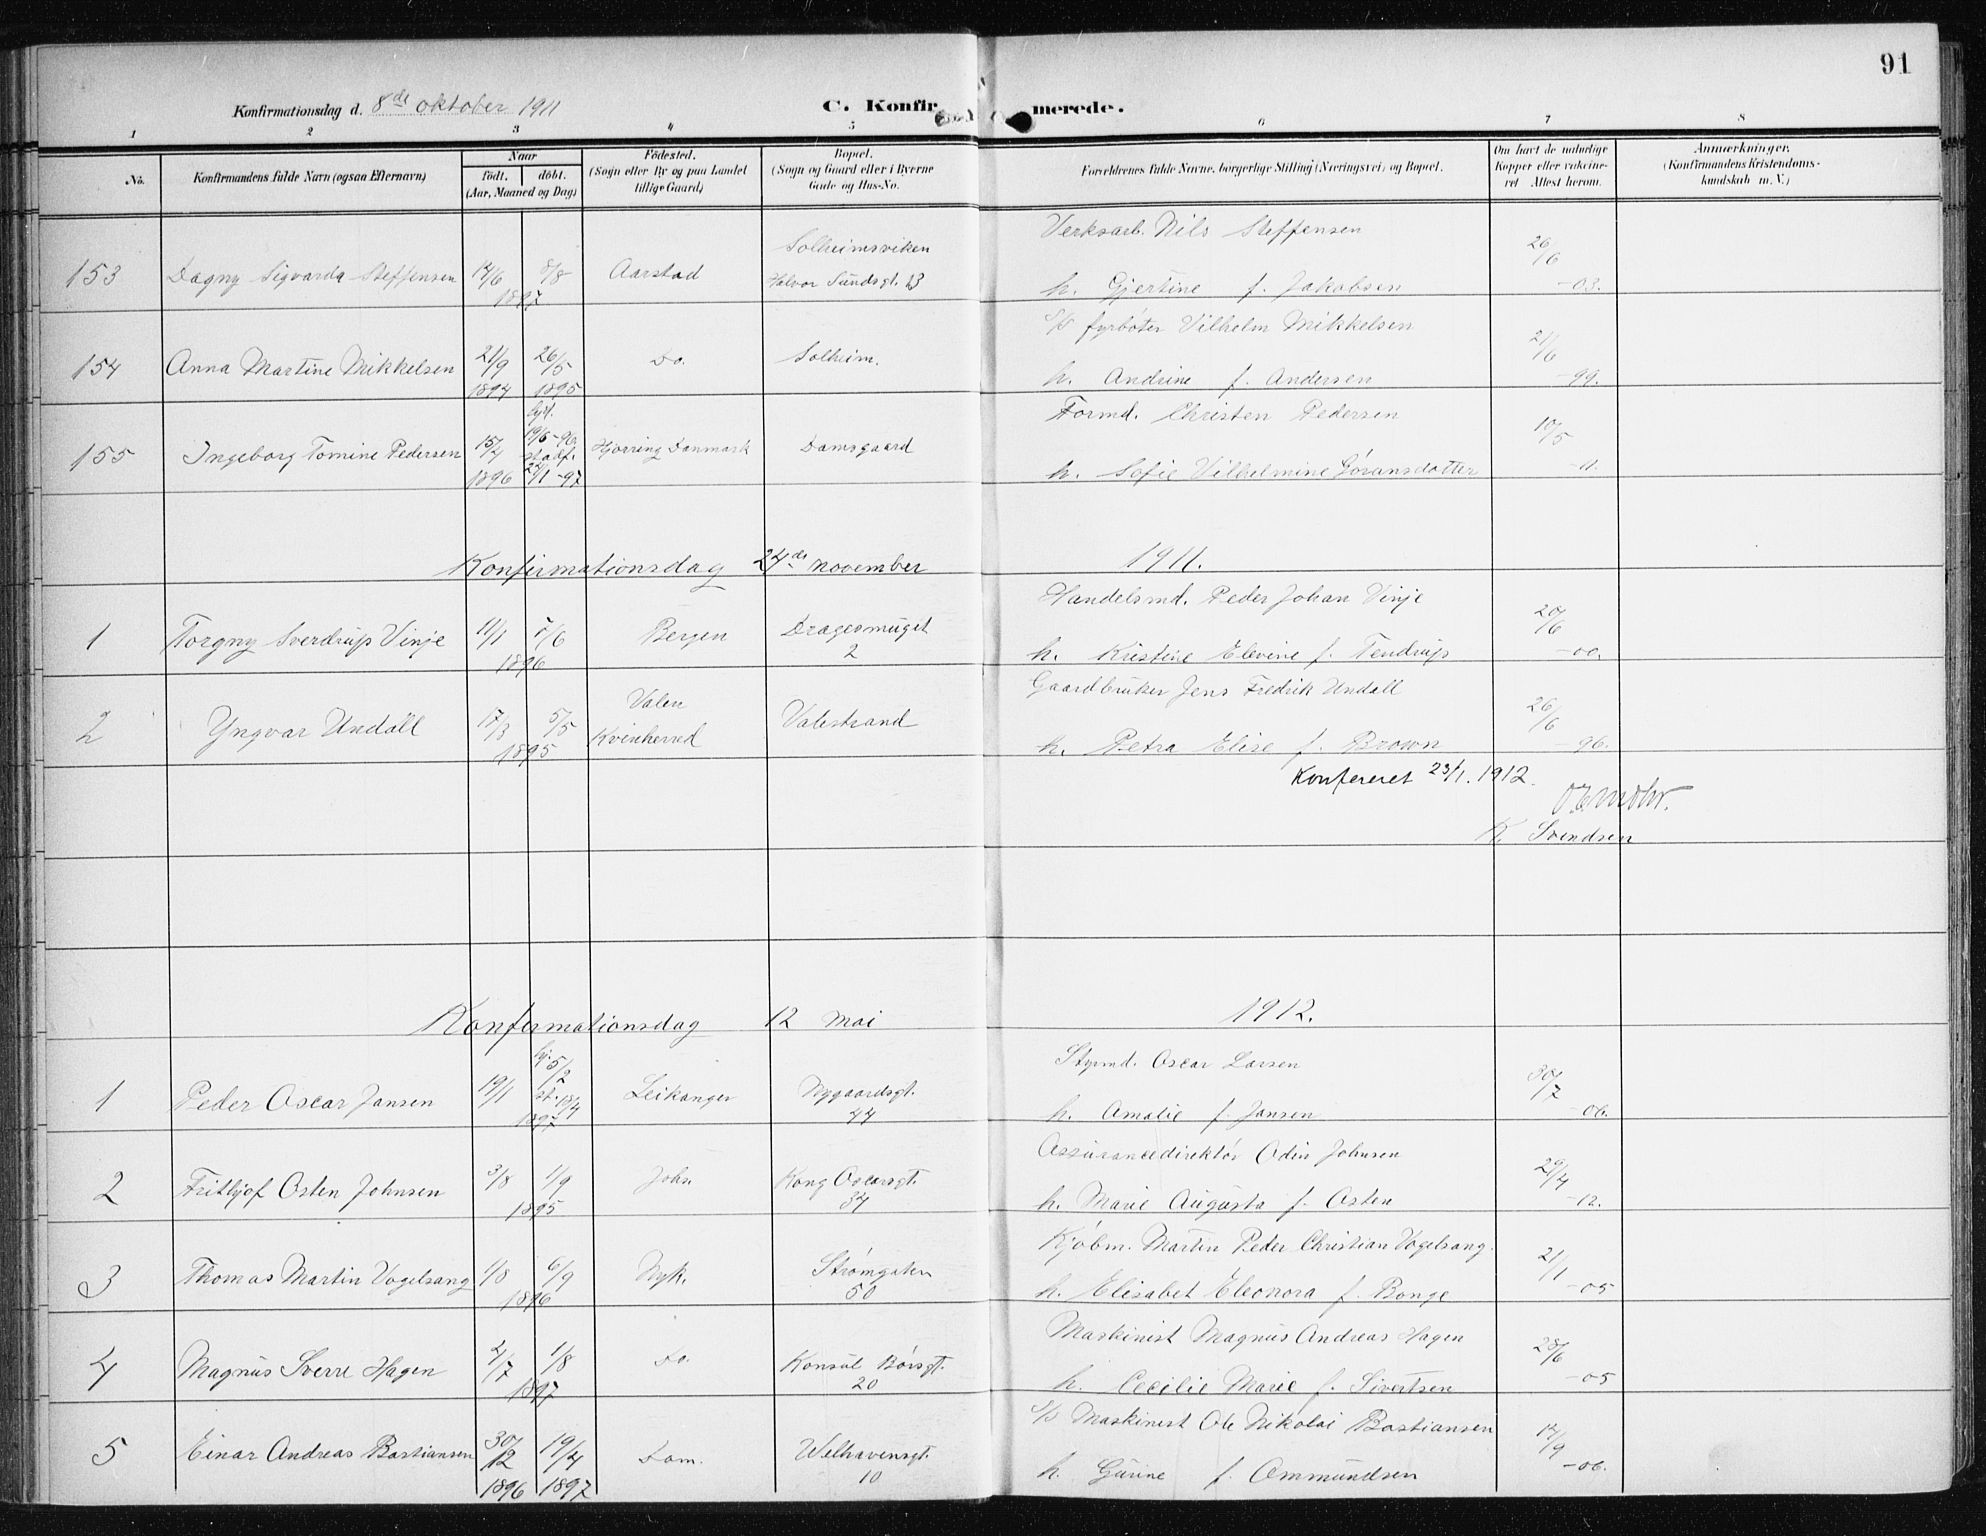 91
Konfirmationsdag d. 8de oktober 1911
C. Konfirmerede.
1 2 3 4 5 6 7 8
No.
Konfirmandens fulde Navn (ogsaa Efternavn)
Naar
født. døbt.
(Aar, Maaned og Dag)
Fødested.
(Sogn eller By og paa Landet
tillige Gaard)
Bopæl.
(Sogn og Gaard eller i Byerne
Gade og Hus-No.
Forældrenes fulde Navne, borgerlige Stilling (Næringsvei) og Bopæl.
Om havt de naturlige
Kopper eller vakcine-
ret Attest herom.
Anmærkninger.
(Konfirmandens Kristendoms-
kundskab m. V.)
Verksarb. Nils Steffensen
Solheimsviken
153 Dagny Sigvarda Steffensen 12/6 8/8 Aarstad Halvor Sundsgt. 13 26/6
1897 h. Gjertine f. Jakobsen -03.
s/s fyrbøter Vilhelm Mikkelsen
154 Anna Martine Mikkelsen 21/9 26/5 Do. Solheim. 21/6
1894 1895 h. Andrine f. Andersen -99.
hjd. Formd. Christen Pedersen
155 Ingeborg Tomine Pedersen 15/4 19/5-96 Hjørring Danmark Damsgaard 10/5
stadf.
1896 24/1-97 h. Sofie Vilhelmine Gøransdatter -11.
Konfirmationsdag 24de november 1911.
Handelsmd. Peder Johan Vinje
1 Torgny Sverdrup Vinje 11/1 7/6 Bergen Dragesmuget 20/6
1896 2 h. Kristine Elevine f. Tendrup -00.
Gaardbruker Jens Fredrik Undall
Valen
2 Yngvar Undall 17/3 5/5 Kvinherred Valestrand 26/6
1895 h. Petra Elise f. Brown -96.
Konfereret 23/1. 1912.
K. Svendsen
Konfirmationsdag 12 Mai 1912.
hj. 5/2 Styrmd. Oscar Larsen
1 Peder Oscar Jansen 19/1 st. 18/4 Leikanger Nygaardsgt. 30/7
1897 44 h. Amalie f. Jansen -06.
Assurancedirektør Odin Johnsen
2 Frithjof Osten Johnsen 3/8 1/9 Joh. Kong Oscarsgt. 29/4
1895 34 h. Marie Augusta f. Osten -12.
Kjøbm. Martin Peder Christian Vogelsang.
3 Thomas Martin Vogelsang 1/8 6/9 Nyk. Strømgaten 21/1
1896 50 h. Elisabet Eleonora f. Bonge -05
Maskinist Magnus Andreas Hagen
4 Magnus Sverre Hagen 2/7 1/8 Do. Konsul Børsgt. 28/6
1897 20 h. Cecilie Marie f. Sivertsen -05
s/s Maskinist Ole Nikolai Bastiansen
5 Einar Andreas Bastiansen 30/12 19/4 Dom. Welhavensgt. 17/9
1896 1897 10 h. Gurine f. Ommundsen -06.